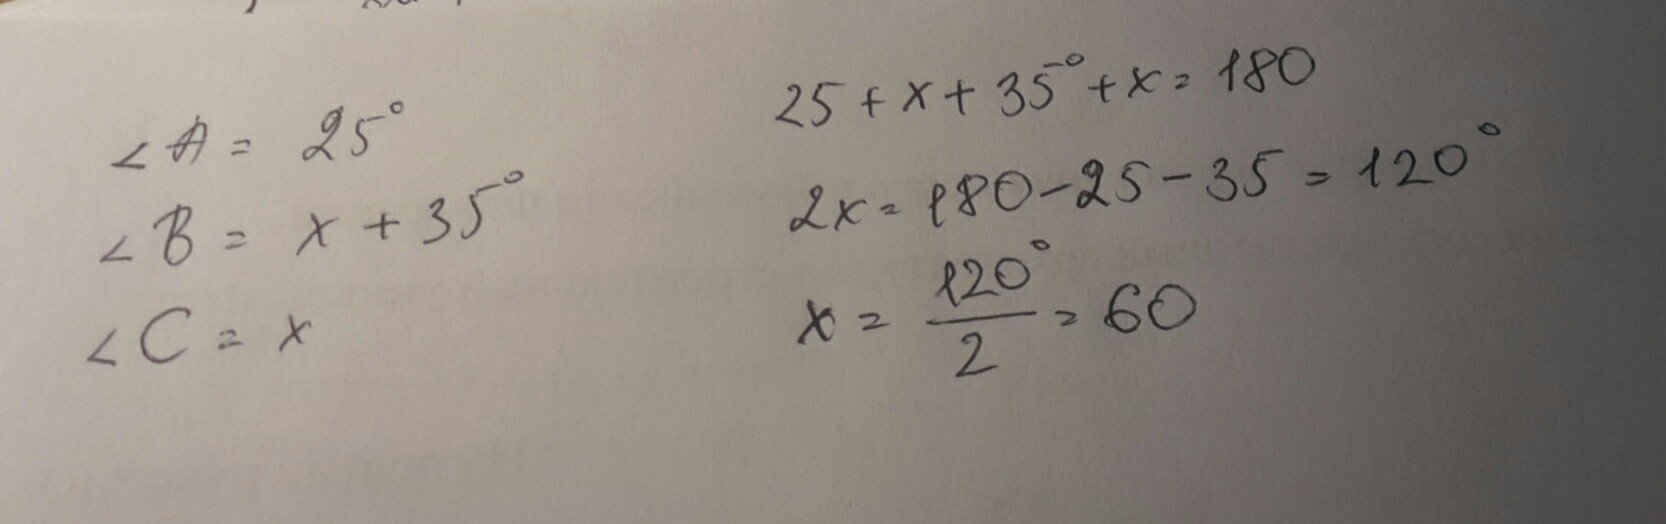 ∠A = 25°
∠B = x + 35°
∠C = x
25 + x + 35° + x = 180
2x = 180 - 25 - 35 = 120°
x = 120°/2 = 60